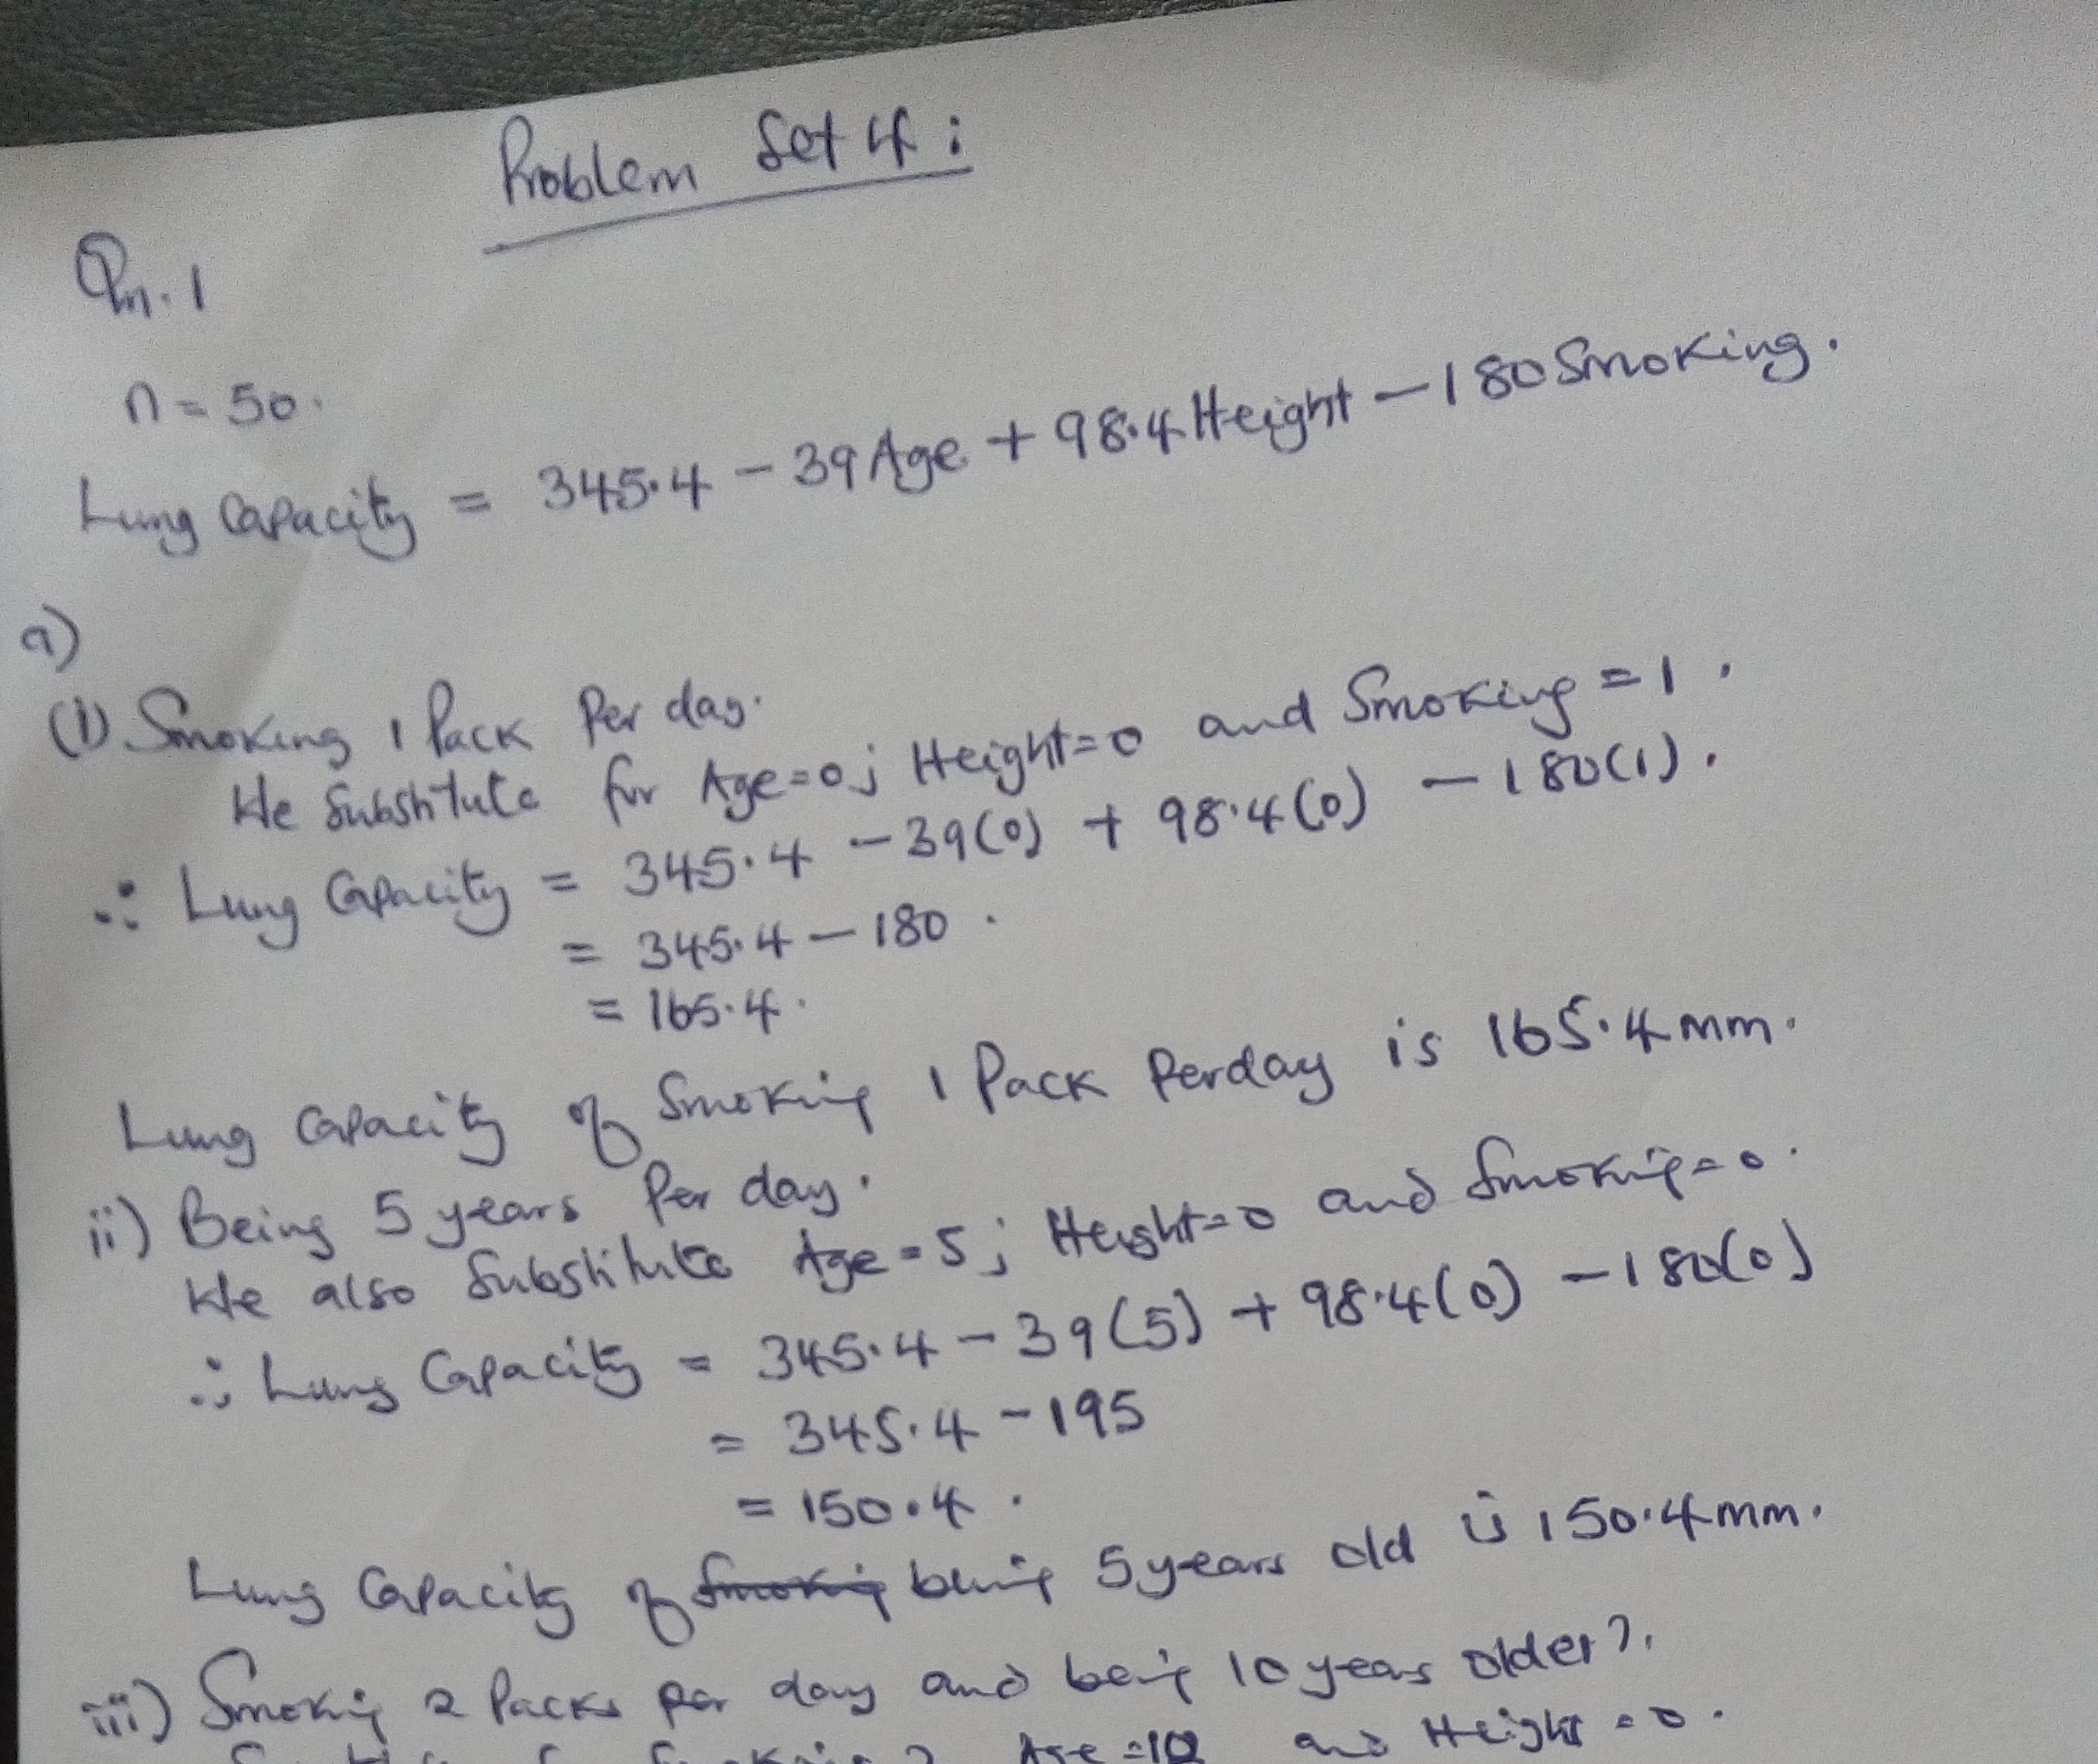 Problem Set 4:
Qn. 1
n = 50.
Lung Capacity = 345.4 - 39 Age + 98.4 Height - 180 Smoking.
a)
(i) Smoking 1 Pack Per day.
We Substitute for Age=0; Height=0 and Smoking = 1.
∴ Lung Capacity = 345.4 - 39(0) + 98.4(0) - 180(1).
= 345.4 - 180.
= 165.4.
Lung Capacity of Smoking 1 Pack Perday is 165.4mm.
ii) Being 5 years Per day.
We also Substitute Age = 5; Height=0 and Smoking=0.
∴ Lung Capacity = 345.4 - 39(5) + 98.4(0) - 180(0)
= 345.4 - 195
= 150.4.
Lung Capacity of Smoking being 5 years old is 150.4mm.
iii) Smoking 2 Packs per day and being 10 years older?.
Age = 10 and Height = 0.